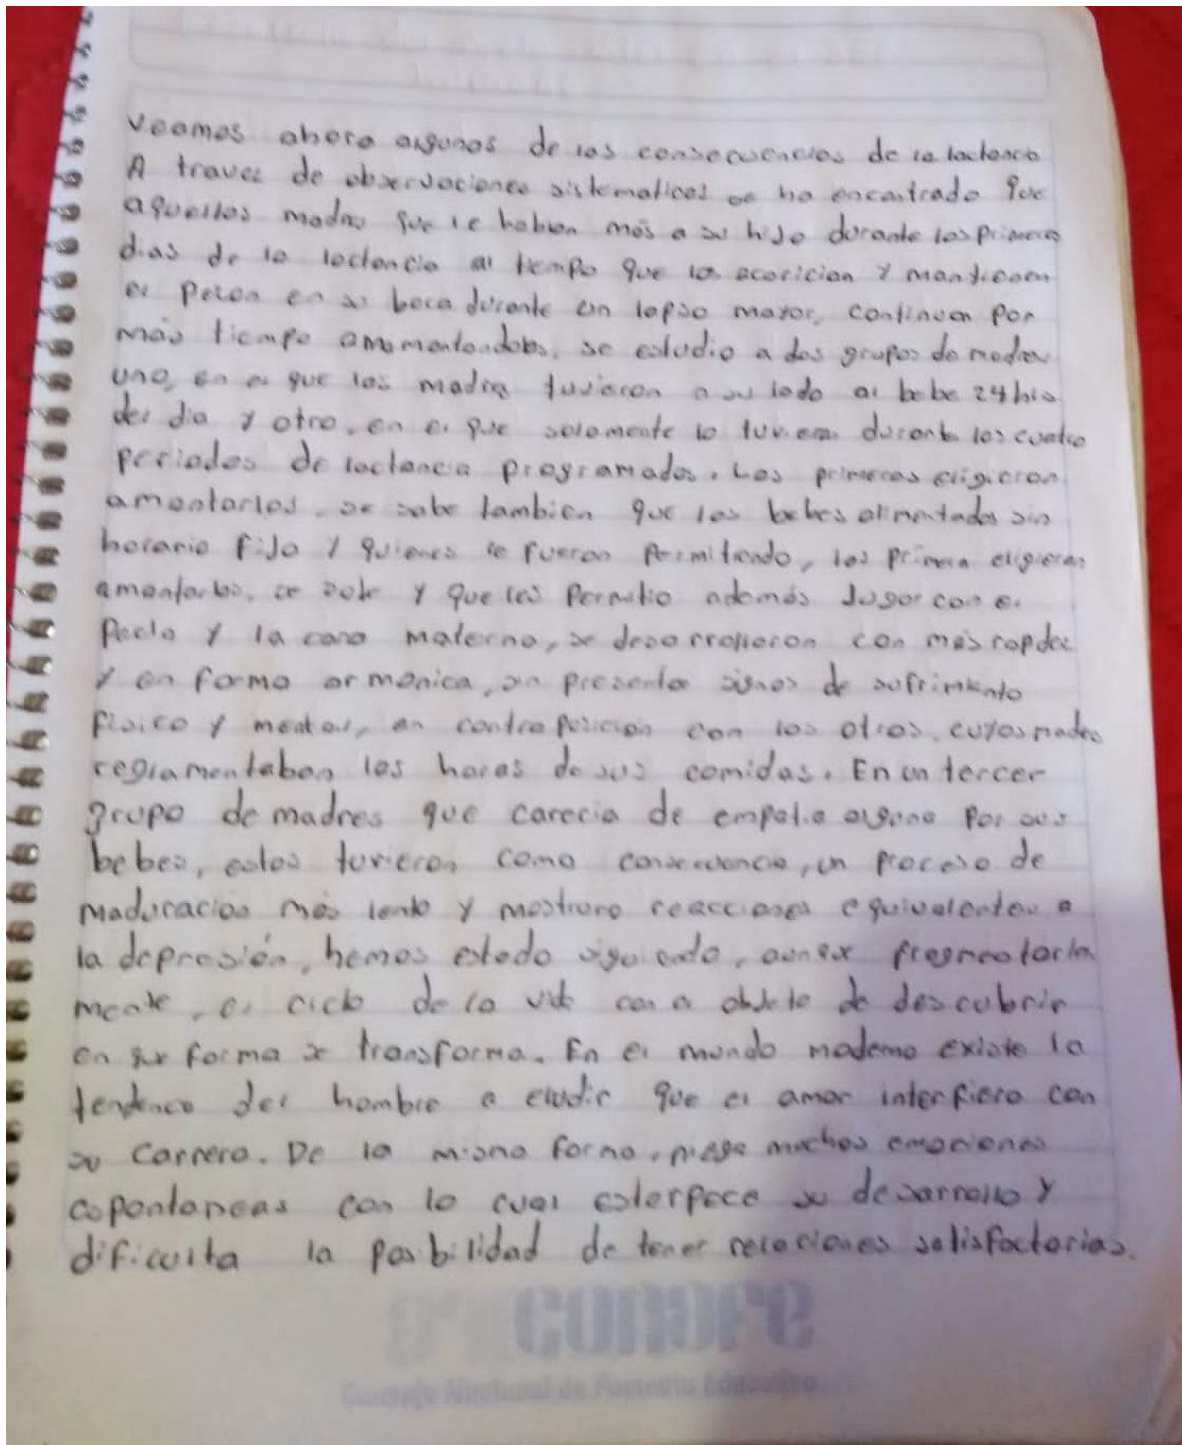 Veamos ahora algunas de las consecuencias de la lactancia
A travez de observaciones sistematicas se ha encontrado que
aquellas madres que le hablan más a su hijo durante los primeros
dias de la lactancia al tiempo que los acarician y mantienen
el pezon en su boca durante un lapso mayor, continuan por
más tiempo amamantandolos, se estudio a dos grupos de madres
uno, en el que las madres tuvieron a su lado al bebe 24 hrs
del dia y otro, en el que solamente lo tuvieron durante los cuatro
periodos de lactancia programados. Las primeras eligieron
amantarlos. se sabe tambien que los bebes alimentados sin
horario fijo y quienes se fueron permitiendo, las primera eligieron
amantarlos, se sabe y que les permitio además jugar con el
pecho y la cara materna, se desarrollaron con más rapdez
y en forma armonica, sin presentar signos de sufrimiento
fisico y mental, en contraposicion con los otros, cuyas madres
reglamentaban las horas de sus comidas. En un tercer
grupo de madres que carecia de empatia alguna por sus
bebes, estos tuvieron como consecuencia, un proceso de
maduracion más lento y mostraro reacciones equivalentes a
la depresión, hemos estado siguiendo, aunque
mente, el ciclo de la vida con objeto de descubrir
en que forma se transforma. En el mundo moderno existe la
tendencia del hombre a eludir que el amor interfiera con
su carrera. De la misma forma, niega muchas emociones
espontaneas con lo cual esterpece su desarrollo y
dificulta la posbilidad de tener relaciones satisfactorias.
conafe
Consejo Nacional de Fomento Educativo